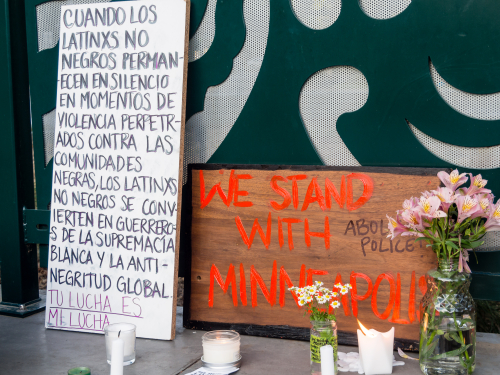 CUANDO LOS
LATINXS NO
NEGROS PERMAN-
ECEN EN SILENCIO
EN MOMENTOS DE
VIOLENCIA PERPETR-
ADOS CONTRA LAS
COMUNIDADES
NEGRAS, LOS LATINXS
NO NEGROS SE CONV-
IERTEN EN GUERRERO-
S DE LA SUPREMACÍA
BLANCA Y LA ANTI-
NEGRITUD GLOBAL.
TU LUCHA ES
MI LUCHA
WE STAND
WITH
MINNEAPOLI
ABOL
POLICE